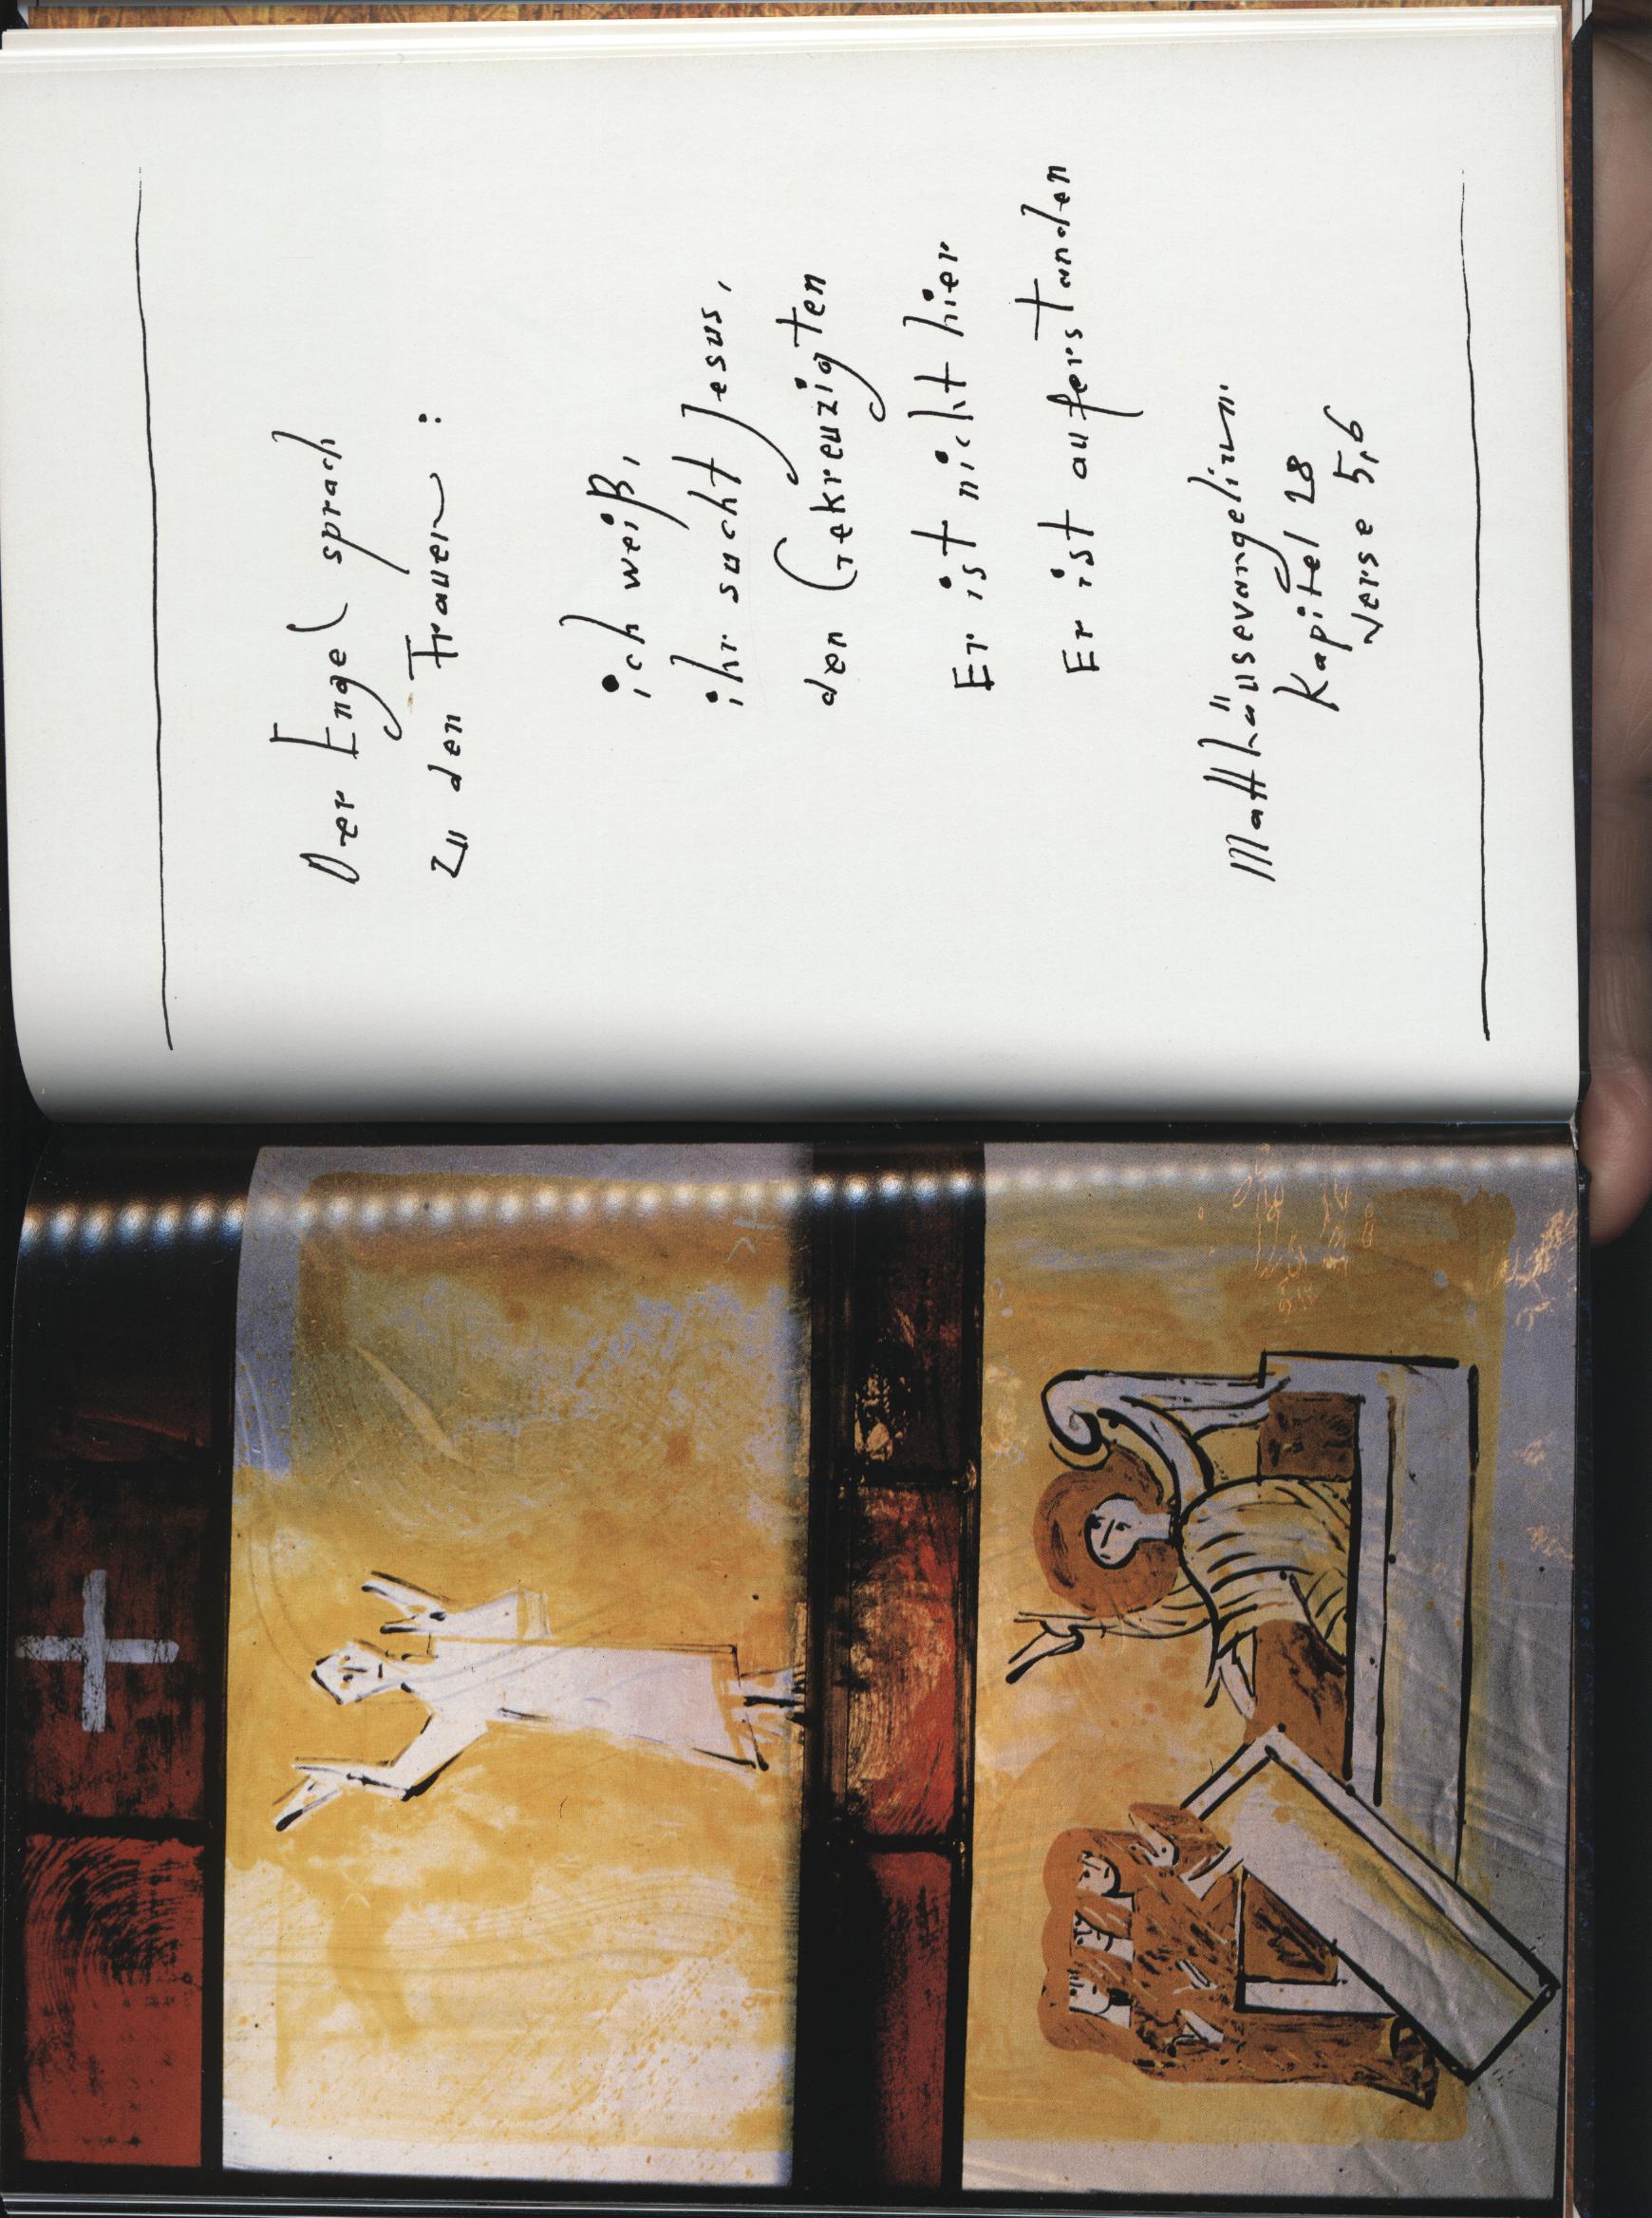 Der Engel sprach
zu den Frauen:
ich weiß,
ihr sucht Jesus,
den Gekreuzigten
Er ist nicht hier
Er ist auferstanden
Matthäusevangelium
Kapitel 28
Verse 5,6